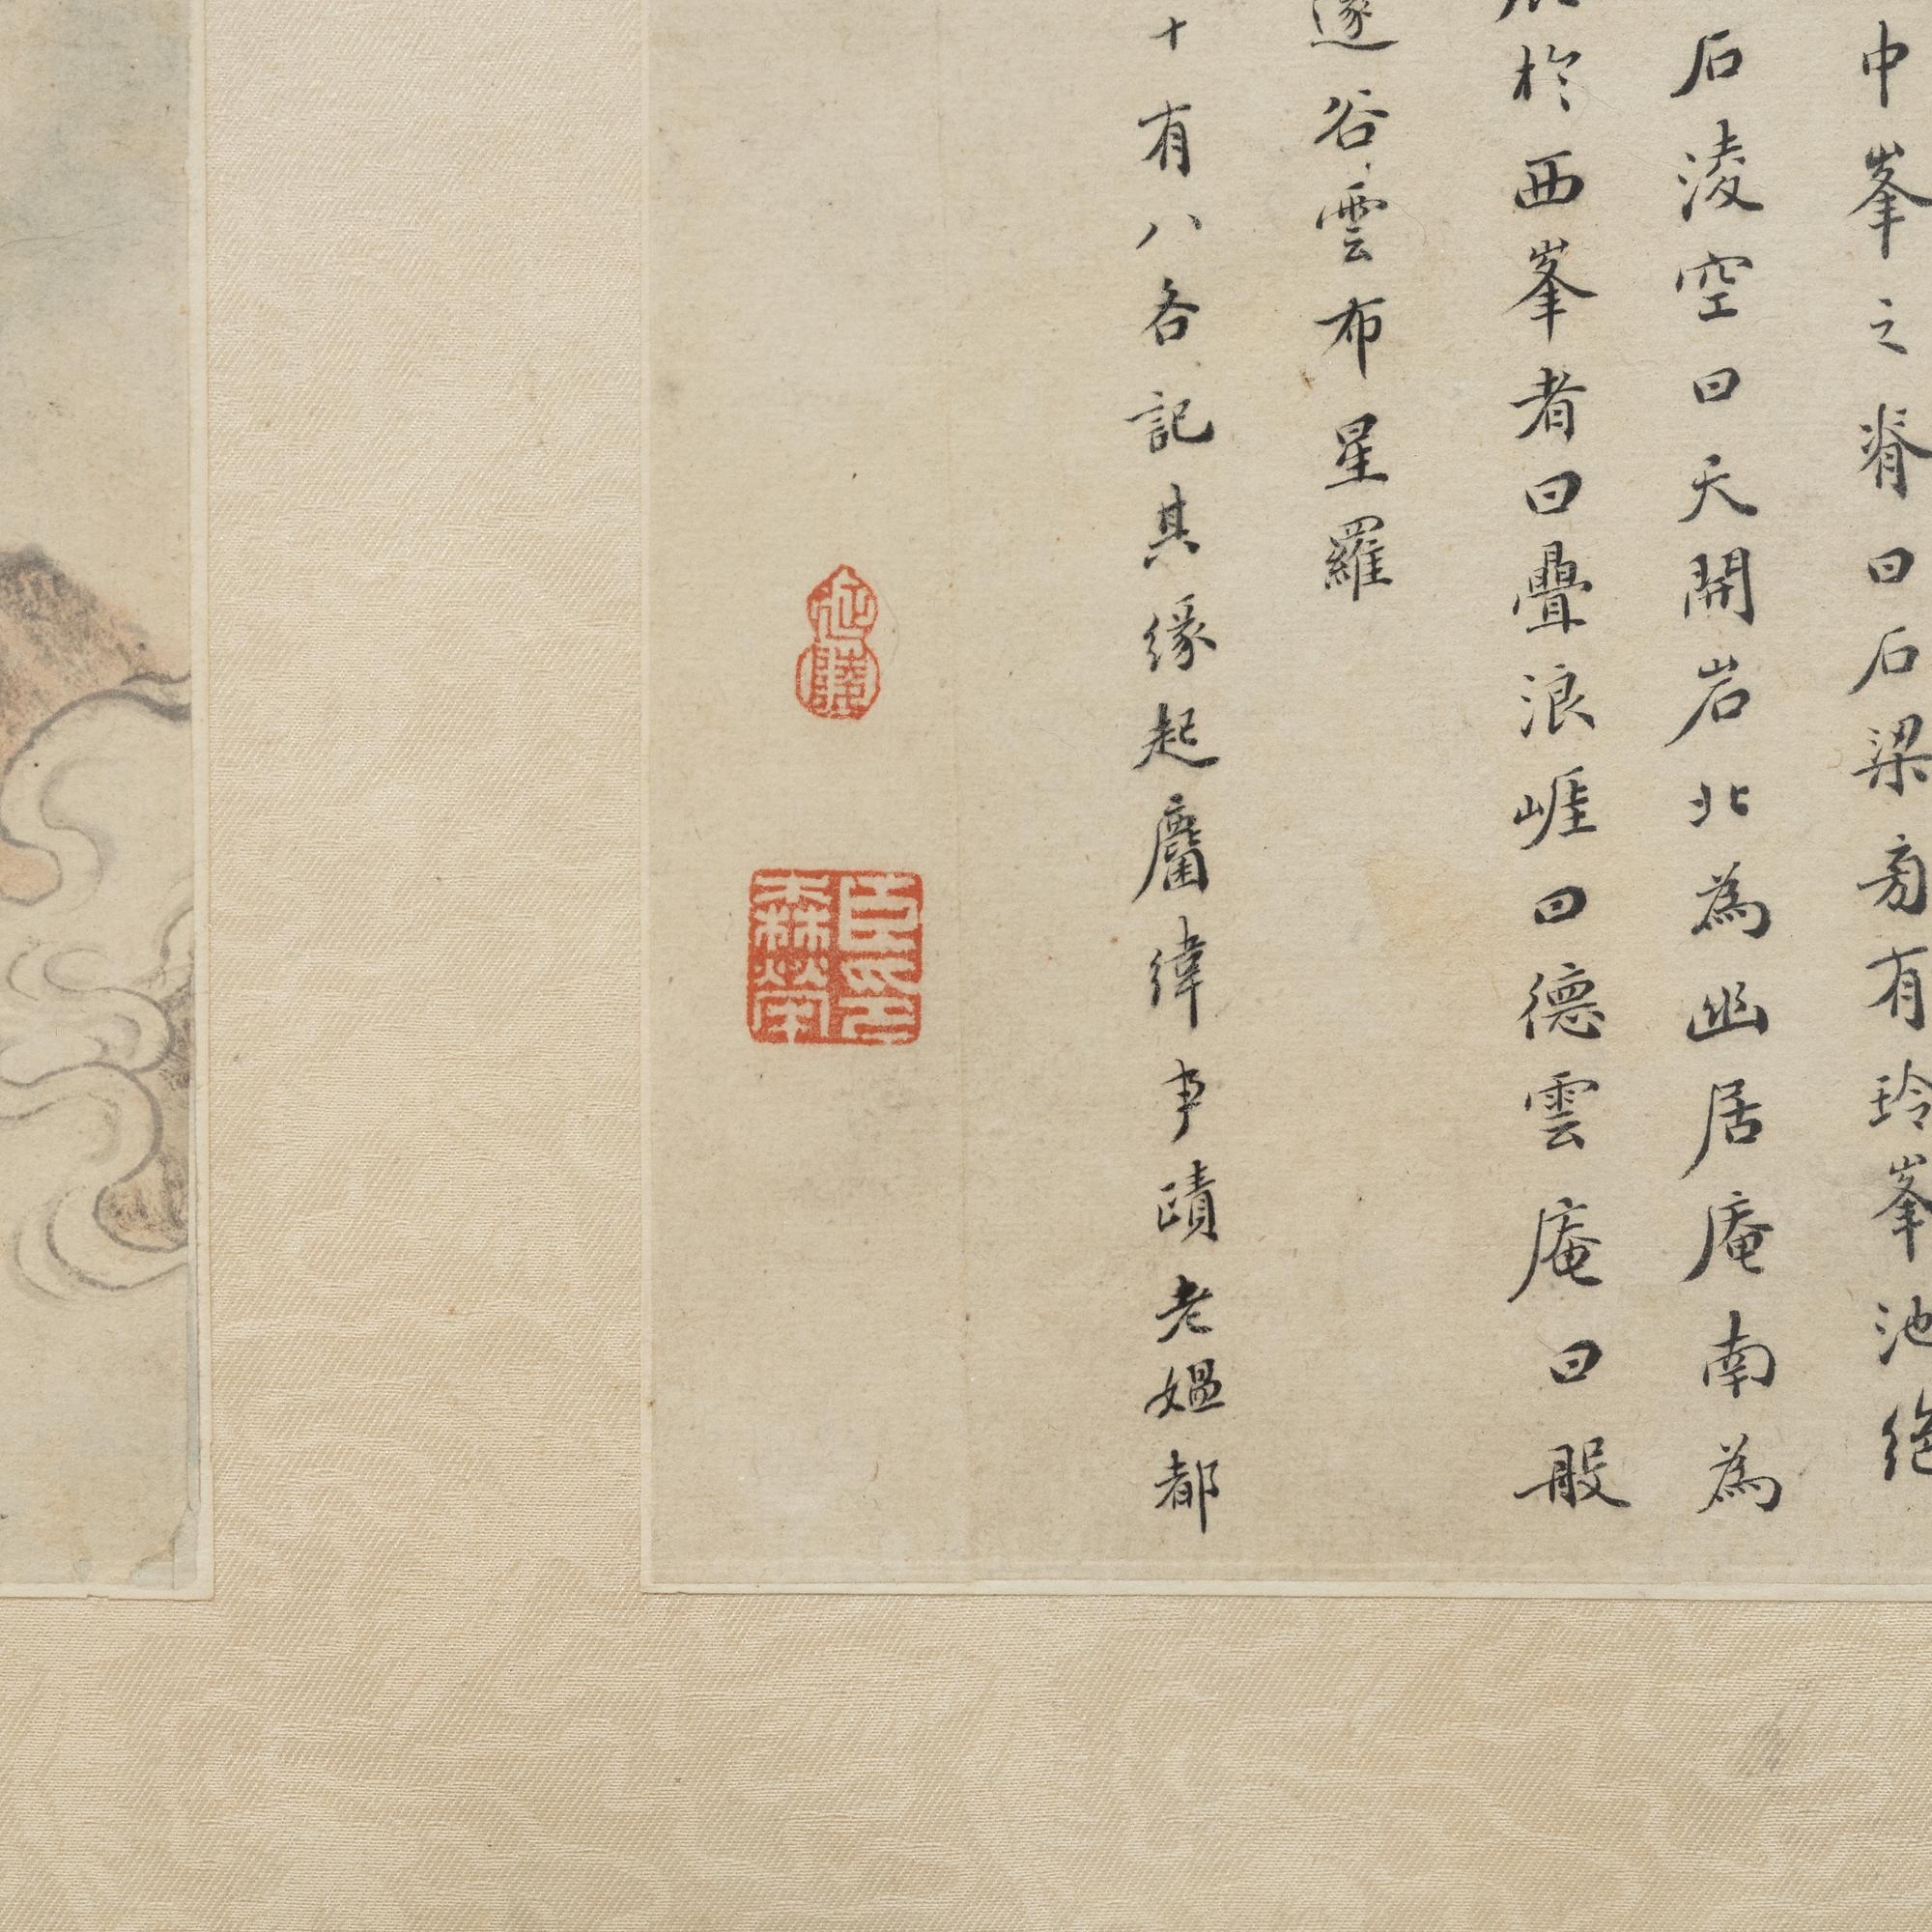 中峯之脊曰石梁旁有玲峯池絕
石淩空曰天開岩北為幽居庵南為
於西峯者曰疊浪崕曰德雲庵曰般
邃谷雲布星羅
十有八各記其緣起麕緯事蹟老媼都
臣印森榮